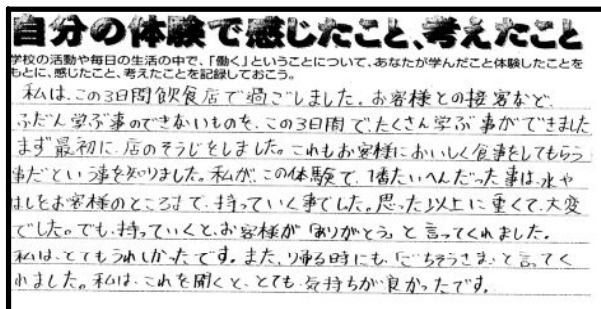 自分の体験で感じたこと、考えたこと
学校の活動や毎日の生活の中で、「働く」ということについて、あなたが学んだこと体験したことを
もとに、感じたこと、考えたことを記録しておこう。
私は、この3日間飲食店で過ごしました。お客様との接客など、
ふだん学ぶ事のできないものを、この3日間で、たくさん学ぶ事ができました
まず最初に、店のそうじをしました。これもお客様においしく食事をしてもらう
事だという事を知りました。私が、この体験で、1番たいへんだった事は、水や
はしをお客様のところまで、持っていく事でした。思った以上に重くて、大変
でした。でも、持っていくと、お客様が「ありがとう」と言ってくれました。
私は、とてもうれしかったです。また、帰る時にも、「ごちそうさま」と言ってく
れました。私は、これを聞くと、とても、気持ちが良かったです。